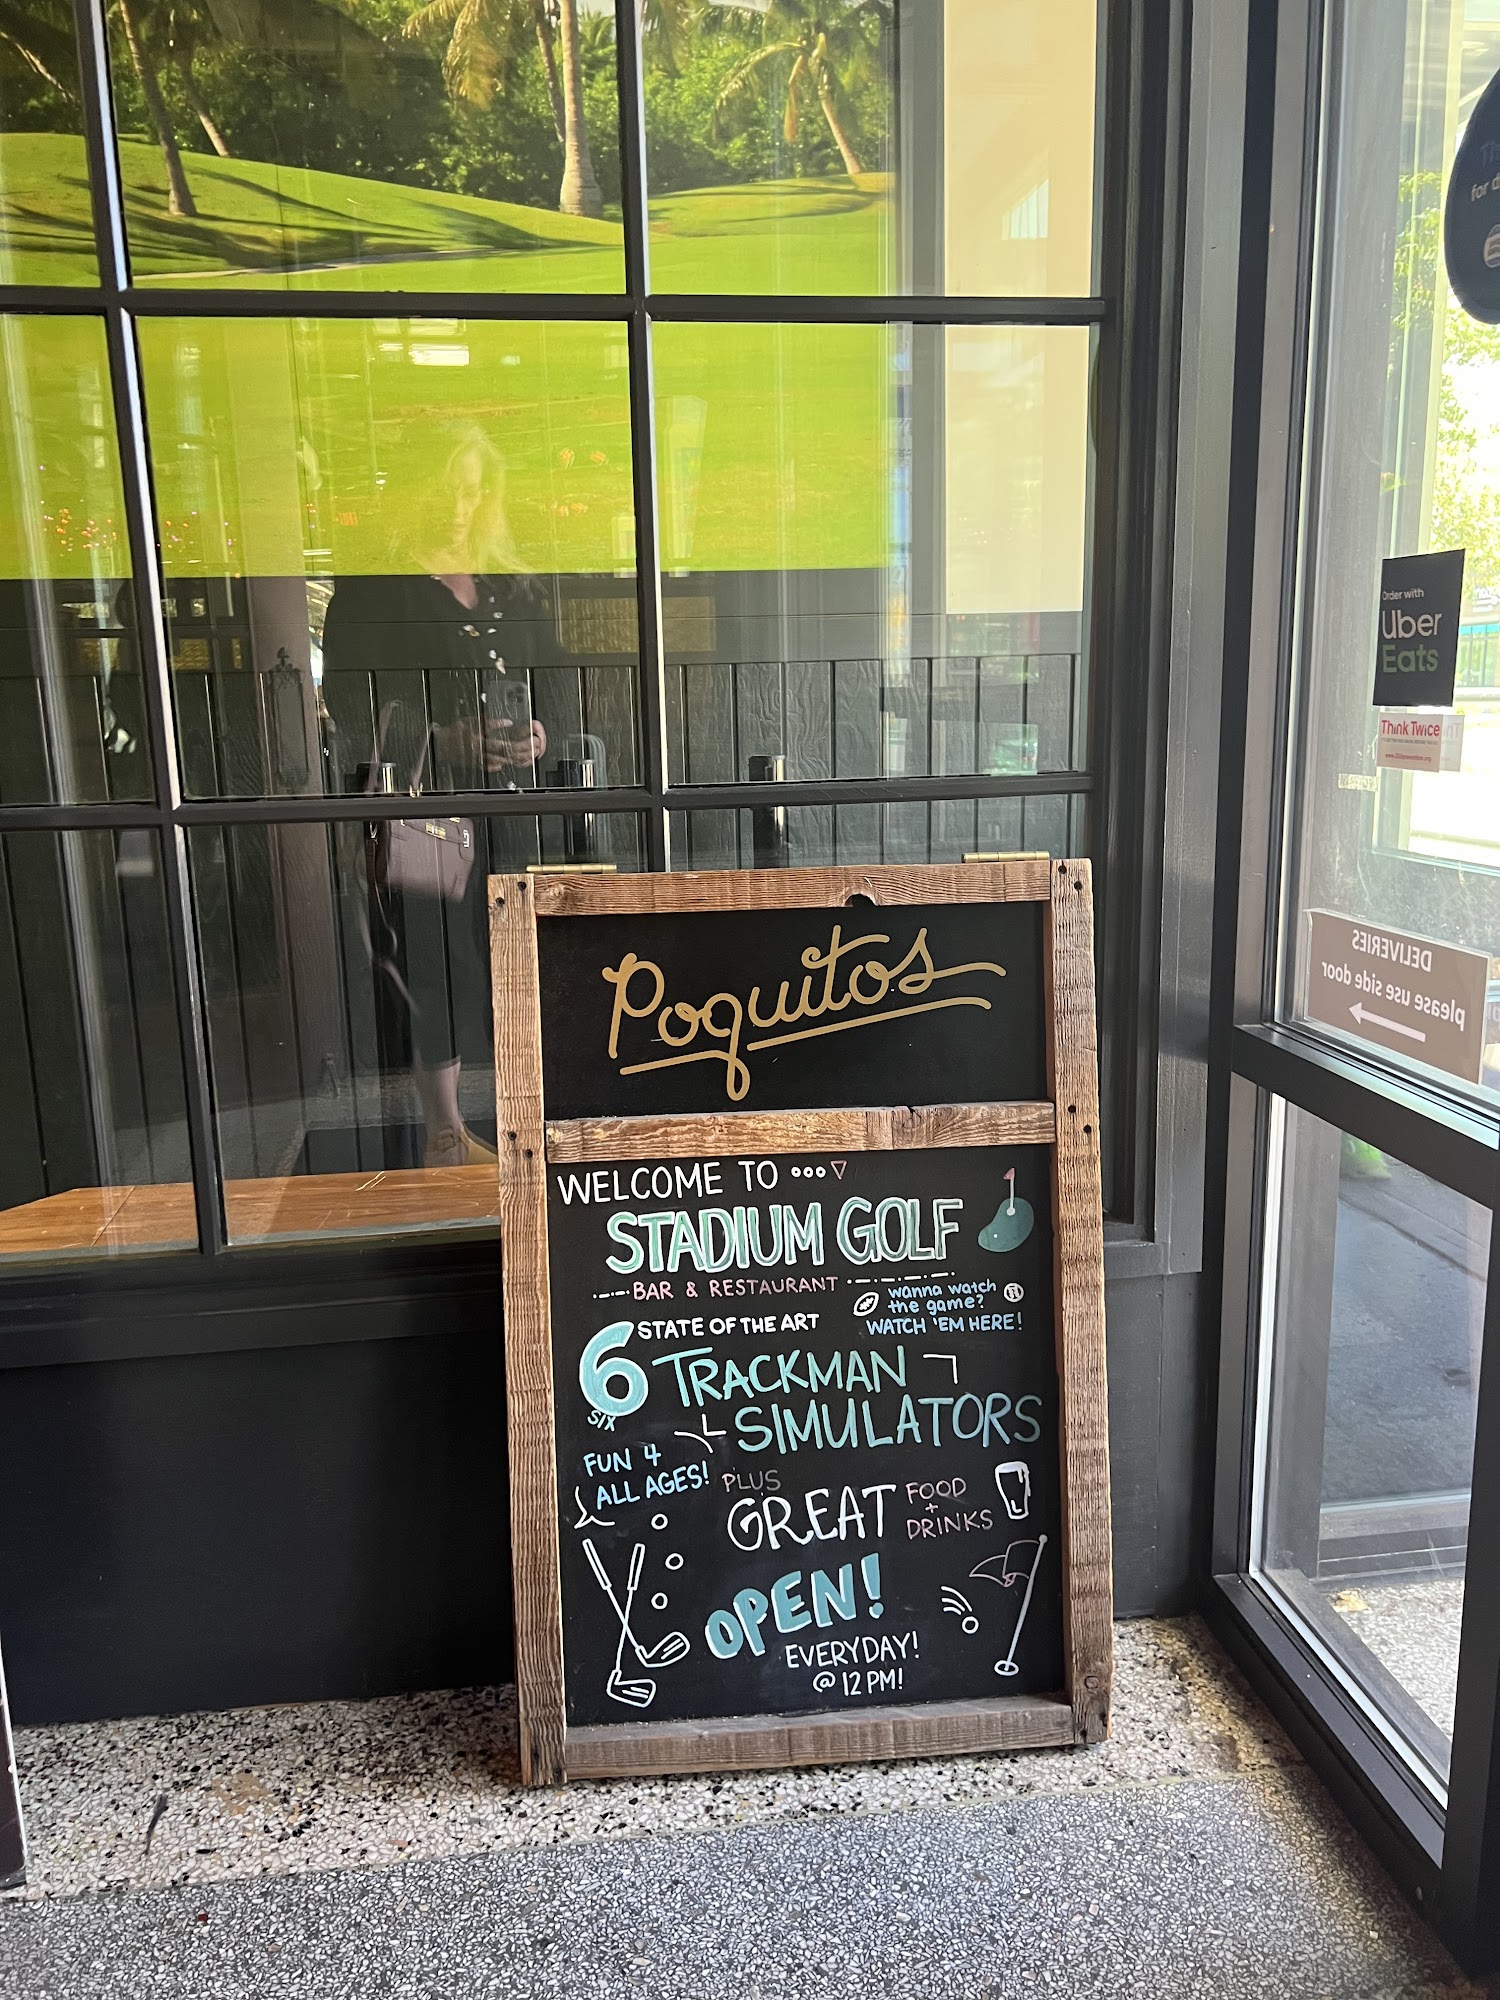 Poquitos
WELCOME TO
STADIUM GOLF
BAR & RESTAURANT
wanna watch
the game?
WATCH 'EM HERE!
6 STATE OF THE ART
SIX
TRACKMAN
SIMULATORS
FUN 4
ALL AGES!
PLUS
GREAT FOOD
+
DRINKS
OPEN!
EVERYDAY!
@ 12 PM!
Order with
Uber
Eats
Think Twice
DELIVERIES
please use side door
for d